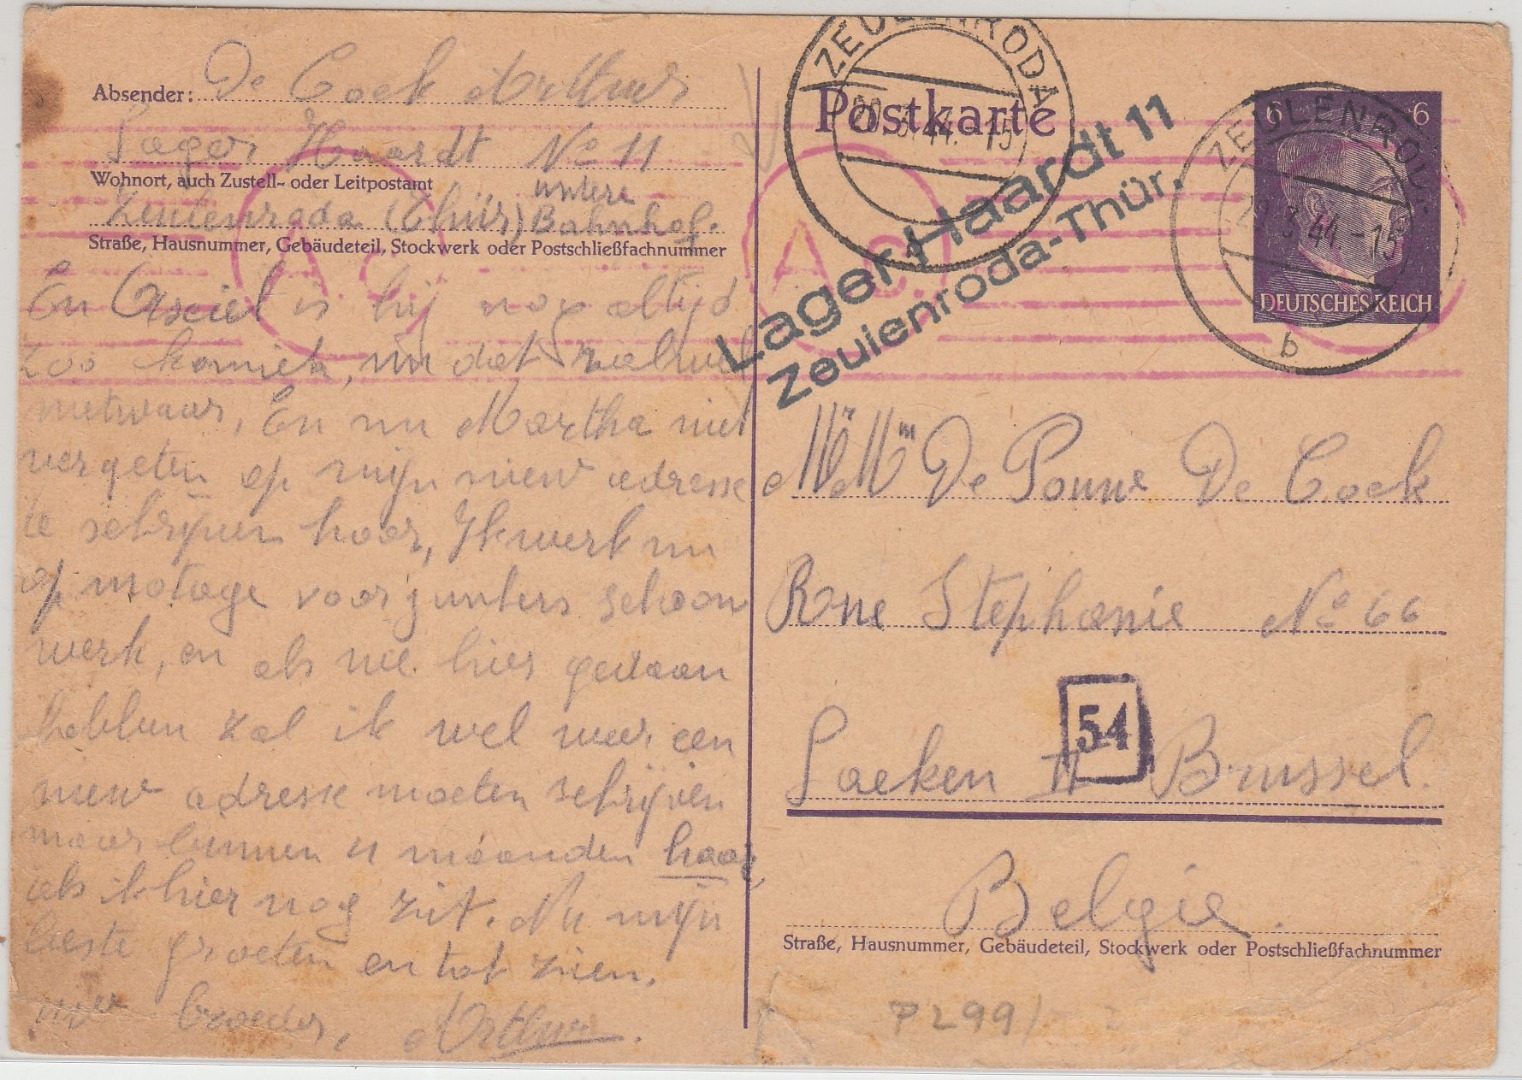 Absender: De Cock Arthur
Lager Haardt No 11
Wohnort, auch Zustell- oder Leitpostamt
Zeulenrada (Thür) untere Bahnhof.
Straße, Hausnummer, Gebäudeteil, Stockwerk oder Postschließfachnummer
En is hij nog altijd
zoo komiek, nu dat zal wel
nietwaar, En nu Martha niet
vergeten op mijn nieuw adresse
te schrijven hoor, Ik werk nu
op motage voor junkers schoon
werk, en als we hier gedaan
hebben zal ik wel weer een
nieuw adresse moeten schrijven
maar binnen 4 maanden hoor,
als ik hier nog zit. Nu mijn
beste groeten en tot zien.
uw broeder, Arthur.
ZEULENRODA
20.3.44.-15
Postkarte
Ac
Ac.
Lager Haardt 11
Zeulenroda-Thür.
6 6
DEUTSCHES REICH
ZEULENRODA
20.3.44.-15
b
Mr Mm De De Cock
Rue Stephanie No 66
Laeken Brussel.
54
Belgie.
Straße, Hausnummer, Gebäudeteil, Stockwerk oder Postschließfachnummer
P299/